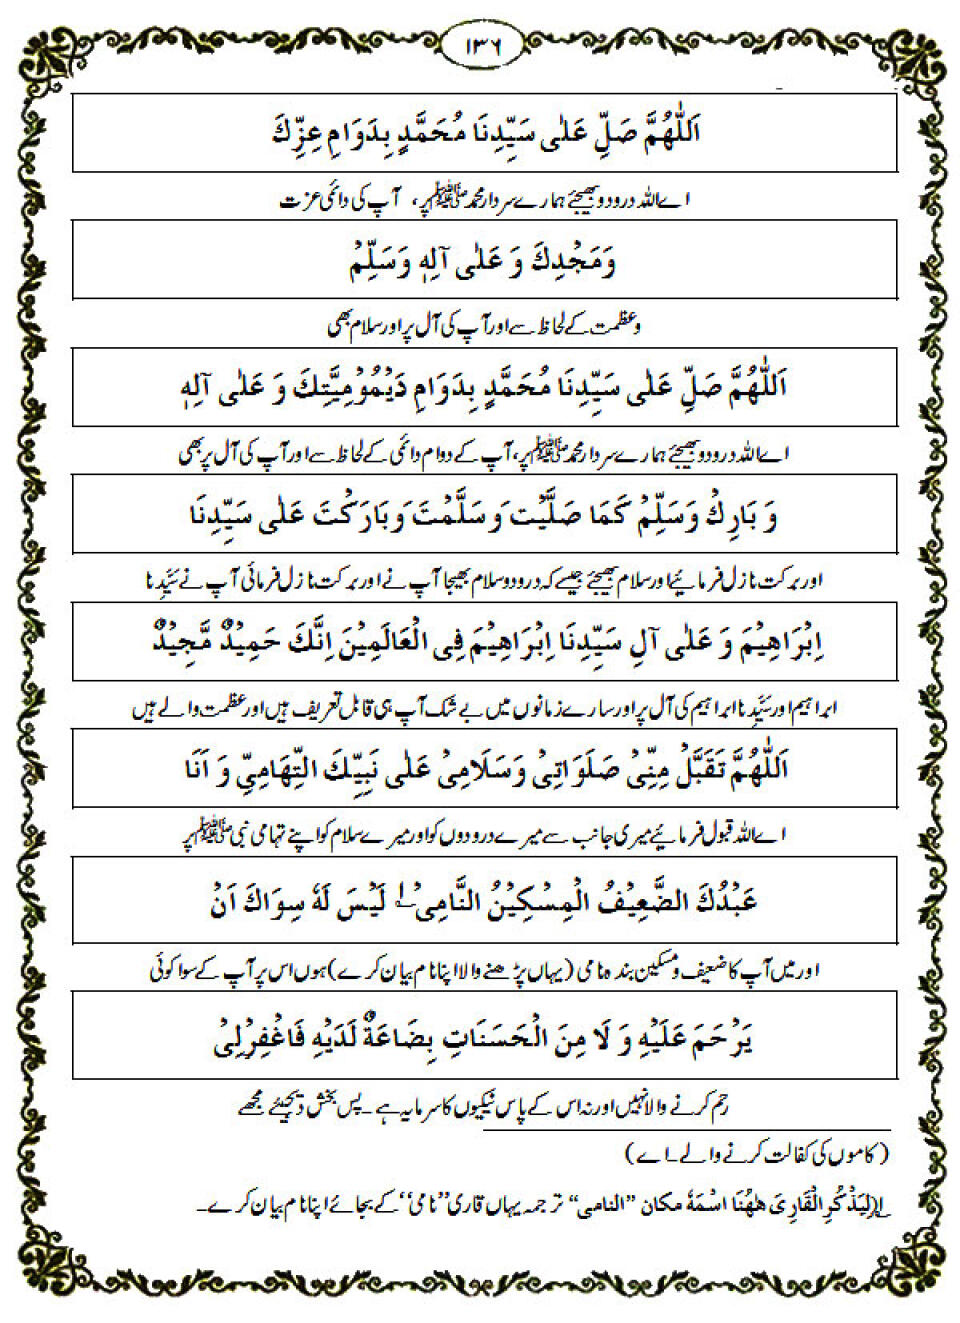 ۱۳۶
اَللّٰهُمَّ صَلِّ عَلٰى سَيِّدِنَا مُحَمَّدٍ بِدَوَامِ عِزِّكَ
اے اللہ درود بھیجئے ہمارے سردار محمد ﷺ پر، آپ کی دائمی عزت
وَمَجْدِكَ وَ عَلٰى آلِهٖ وَسَلِّمْ
و عظمت کے لحاظ سے اور آپ کی آل پر اور سلام بھی
اَللّٰهُمَّ صَلِّ عَلٰى سَيِّدِنَا مُحَمَّدٍ بِدَوَامِ دَيْمُوْمِيَّتِكَ وَ عَلٰى آلِهٖ
اے اللہ درود بھیجئے ہمارے سردار محمد ﷺ پر، آپ کے دوام دائمی کے لحاظ سے اور آپ کی آل پر بھی
وَ بَارِكْ وَسَلِّمْ كَمَا صَلَّيْتَ وَسَلَّمْتَ وَبَارَكْتَ عَلٰى سَيِّدِنَا
اور برکت نازل فرمائیے اور سلام بھیجئے جیسے کہ درود و سلام بھیجا آپ نے اور برکت نازل فرمائی آپ نے سَیِّدِنا
اِبْرَاهِيْمَ وَ عَلٰى آلِ سَيِّدِنَا اِبْرَاهِيْمَ فِى الْعَالَمِيْنَ اِنَّكَ حَمِيْدٌ مَّجِيْدٌ
ابراہیم اور سَیِّدِنا ابراہیم کی آل پر اور سارے زمانوں میں بے شک آپ ہی قابل تعریف ہیں اور عظمت والے ہیں
اَللّٰهُمَّ تَقَبَّلْ مِنِّىْ صَلَوَاتِىْ وَسَلَامِىْ عَلٰى نَبِيِّكَ التِّهَامِىِّ وَ اَنَا
اے اللہ قبول فرمائیے میری جانب سے میرے درودوں کو اور میرے سلام کو اپنے تہامی نبی ﷺ پر
عَبْدُكَ الضَّعِيْفُ الْمِسْكِيْنُ النَّامِىْ ؂۱ لَيْسَ لَهٗ سِوَاكَ اَنْ
اور میں آپ کا ضعیف و مسکین بندہ نامی (یہاں پڑھنے والا اپنا نام بیان کرے) ہوں اس پر آپ کے سوا کوئی
يَرْحَمَ عَلَيْهِ وَ لَا مِنَ الْحَسَنَاتِ بِضَاعَةٌ لَدَيْهِ فَاغْفِرْلِىْ
رحم کرنے والا نہیں اور نہ اس کے پاس نیکیوں کا سرمایہ ہے۔ پس بخش دیجیئے مجھے
(کاموں کی کفالت کرنے والے۔ اے)
؂۱ لِيَذْكُرِ الْقَارِىَ هٰهُنَا اسْمَهٗ مكان “النامى” ترجمہ یہاں قاری ”نامی“ کے بجائے اپنا نام بیان کرے۔